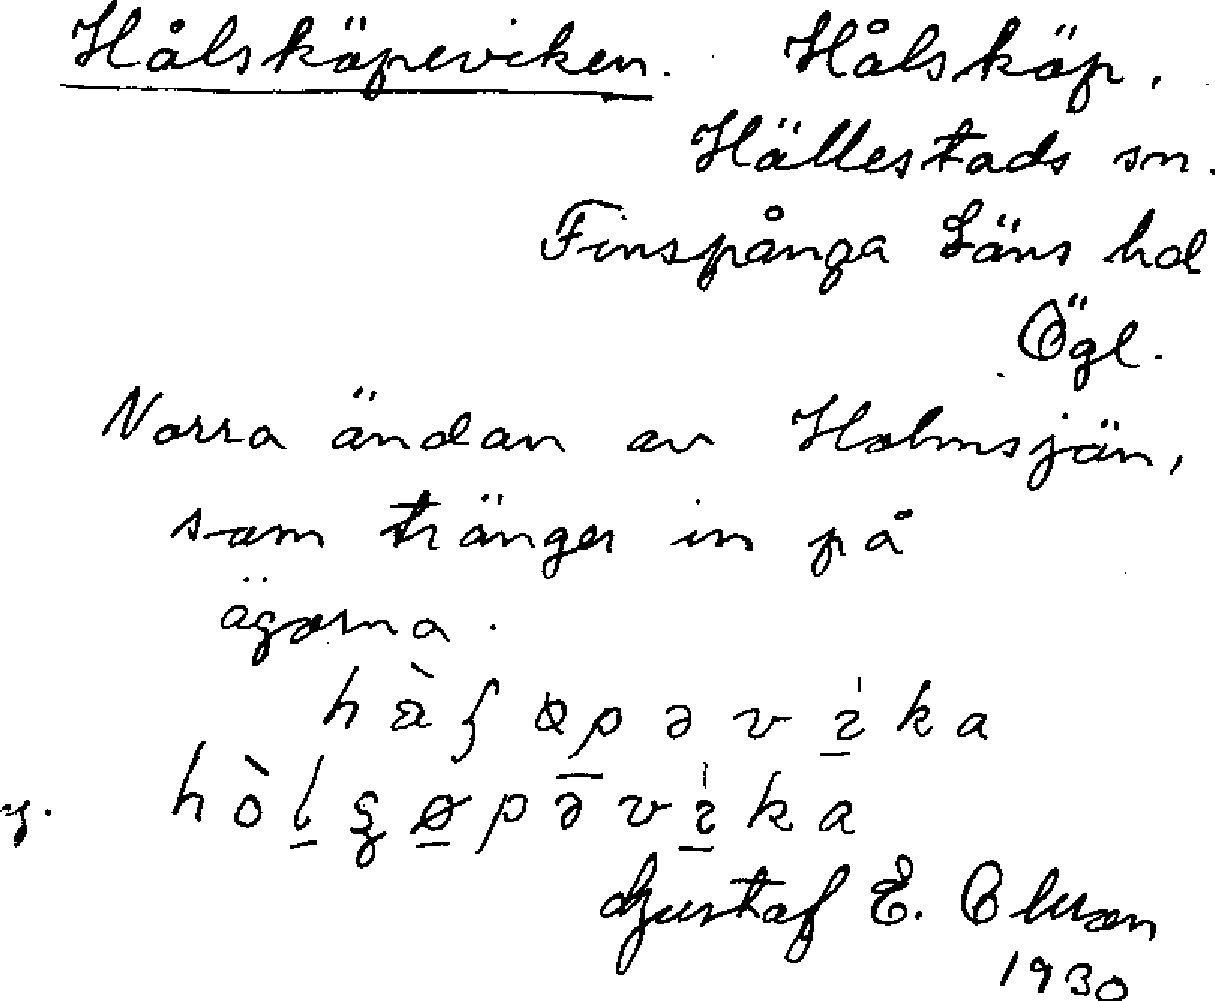 Hålsköpeviken. Hålsköp,
Hällestads sn.
Finspånga Läns hd
Ögl.
Norra ändan av Holmsjön,
som tränger in på
ägorna.
y.
Gustaf E. Olsson
1930